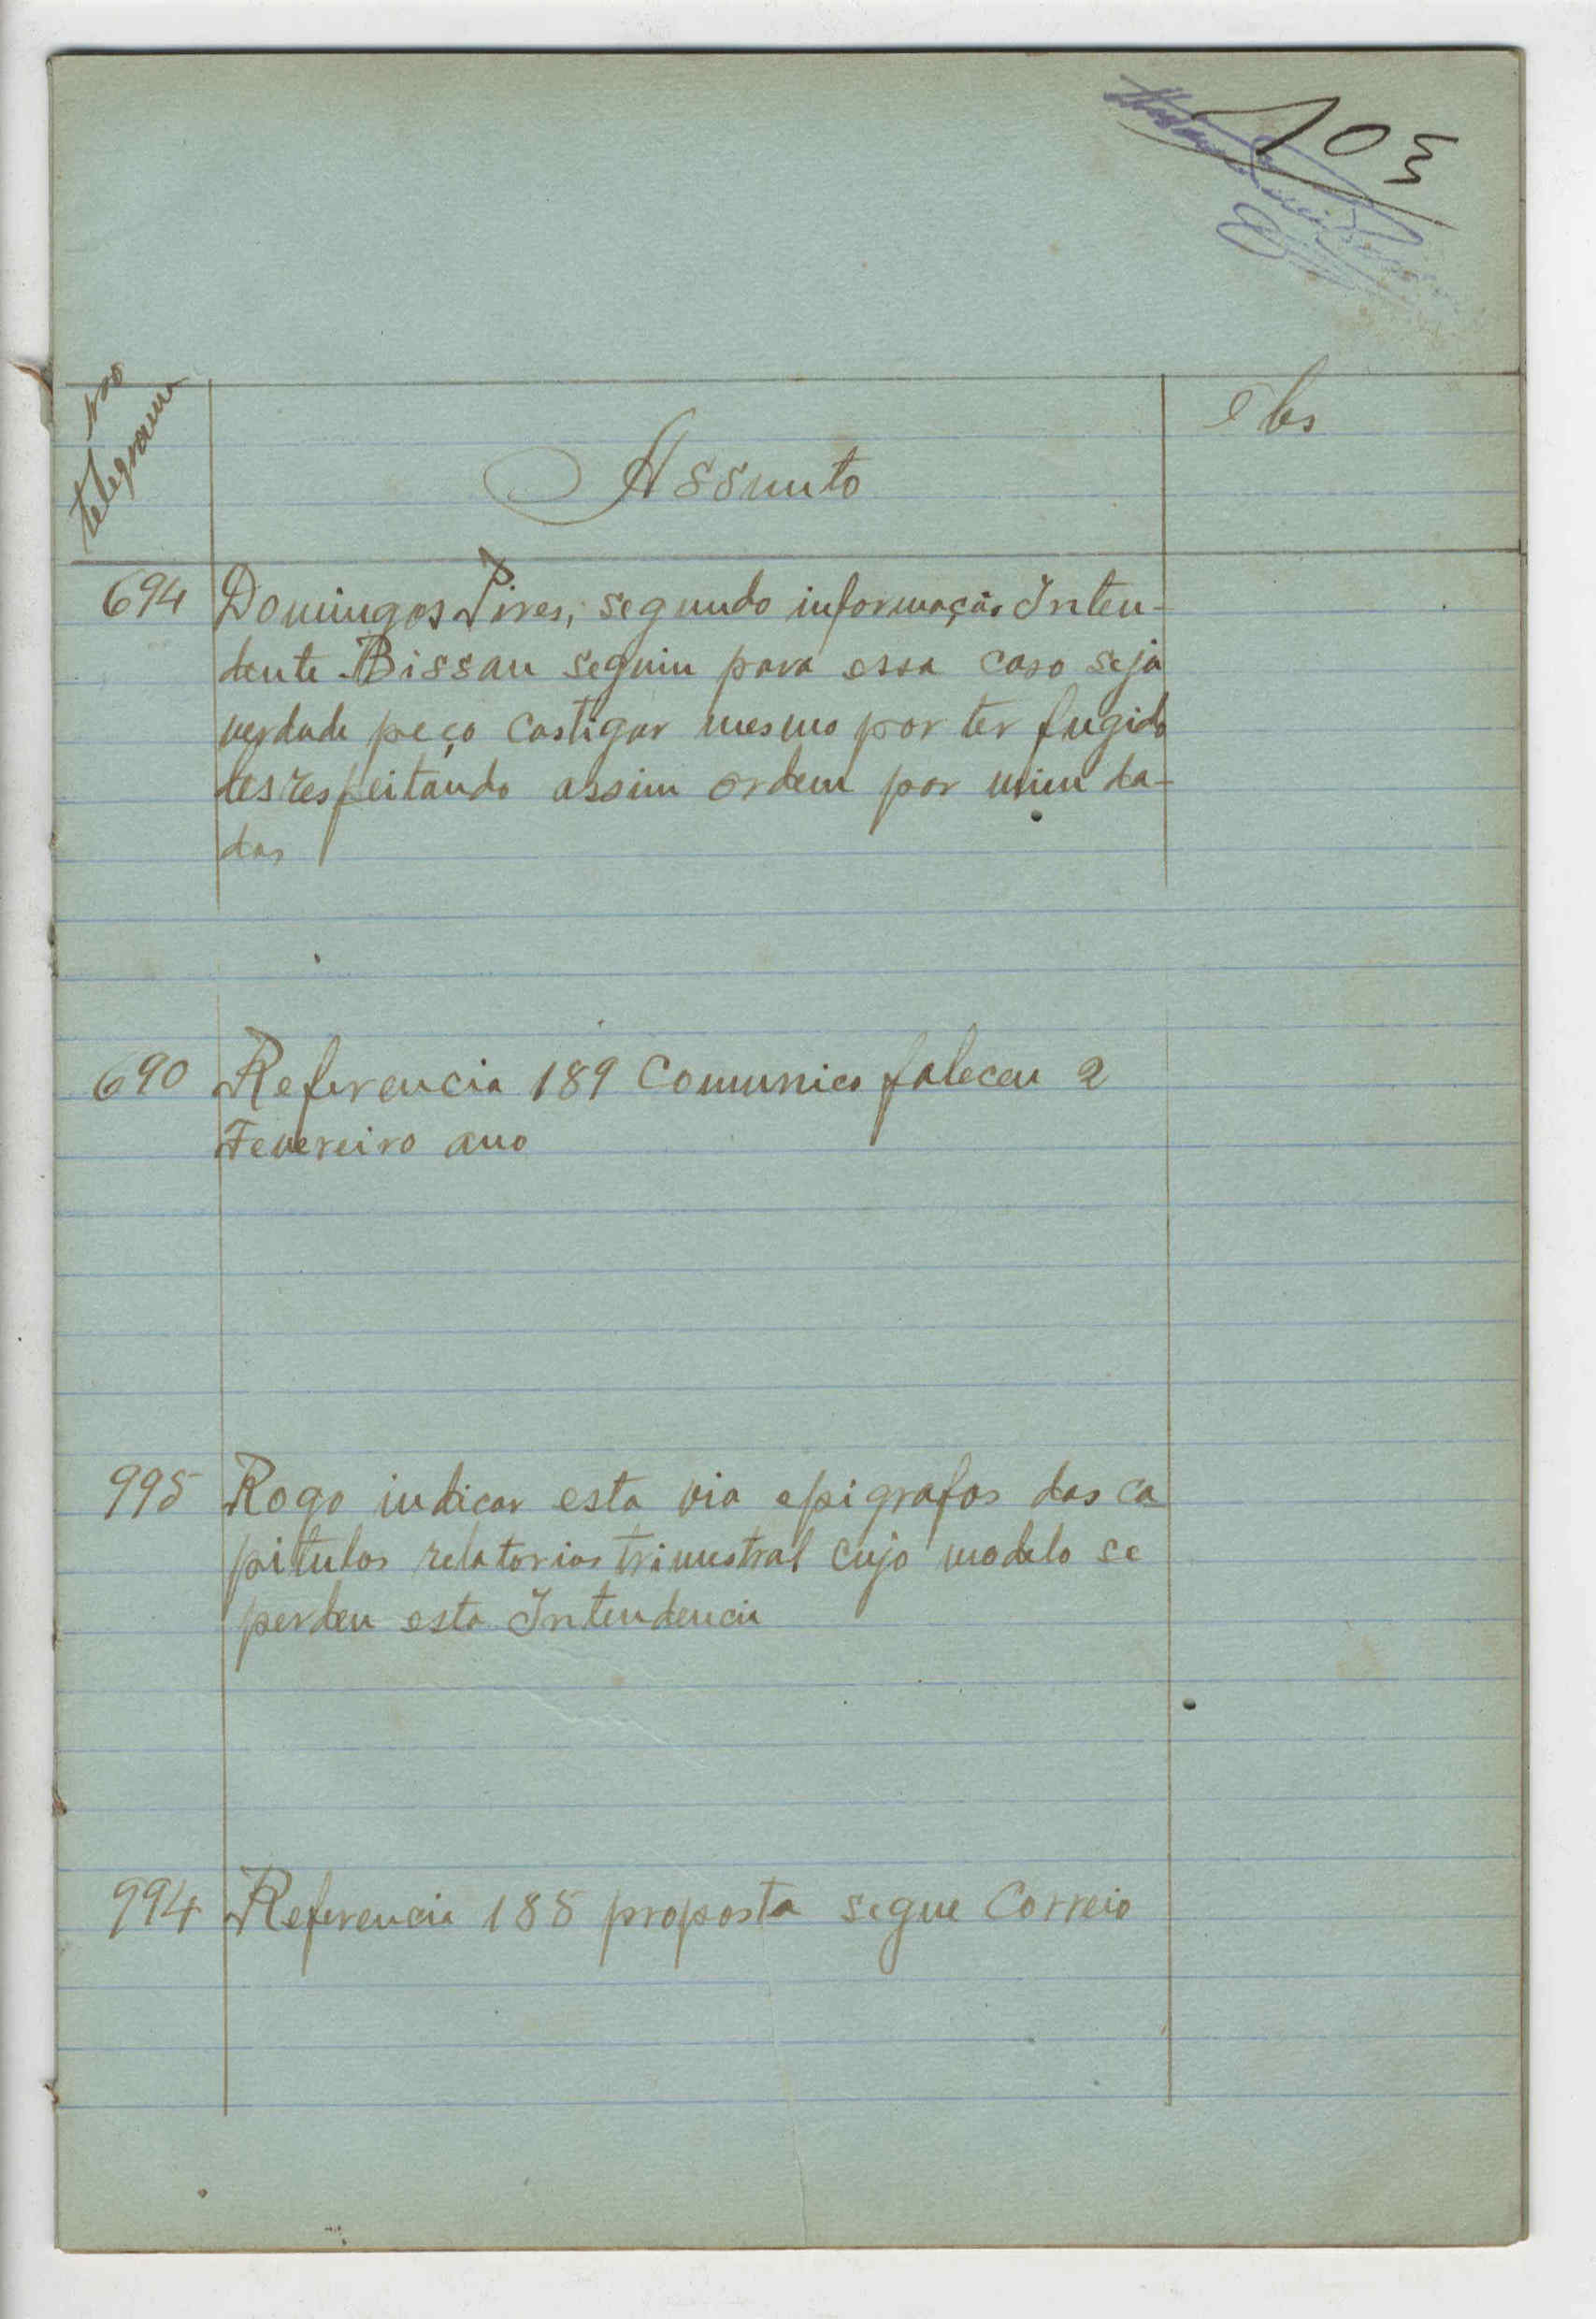 103
Nos
telegrama
Assunto
Obs
694 Domingos Pires, segundo informação Inten-
dente Bissau seguiu para essa caso seja
verdade peço castigar mesmo por ter fugido
desrespeitando assim ordem por mim da-
das
690 Referencia 189 Comunico faleceu 2
Fevereiro ano
995 Rogo indicar esta via epigrafos das ca
pitulos relatorios trimestral cujo modelo se
perdeu esta Intendencia
994 Referencia 188 proposta segue Correio